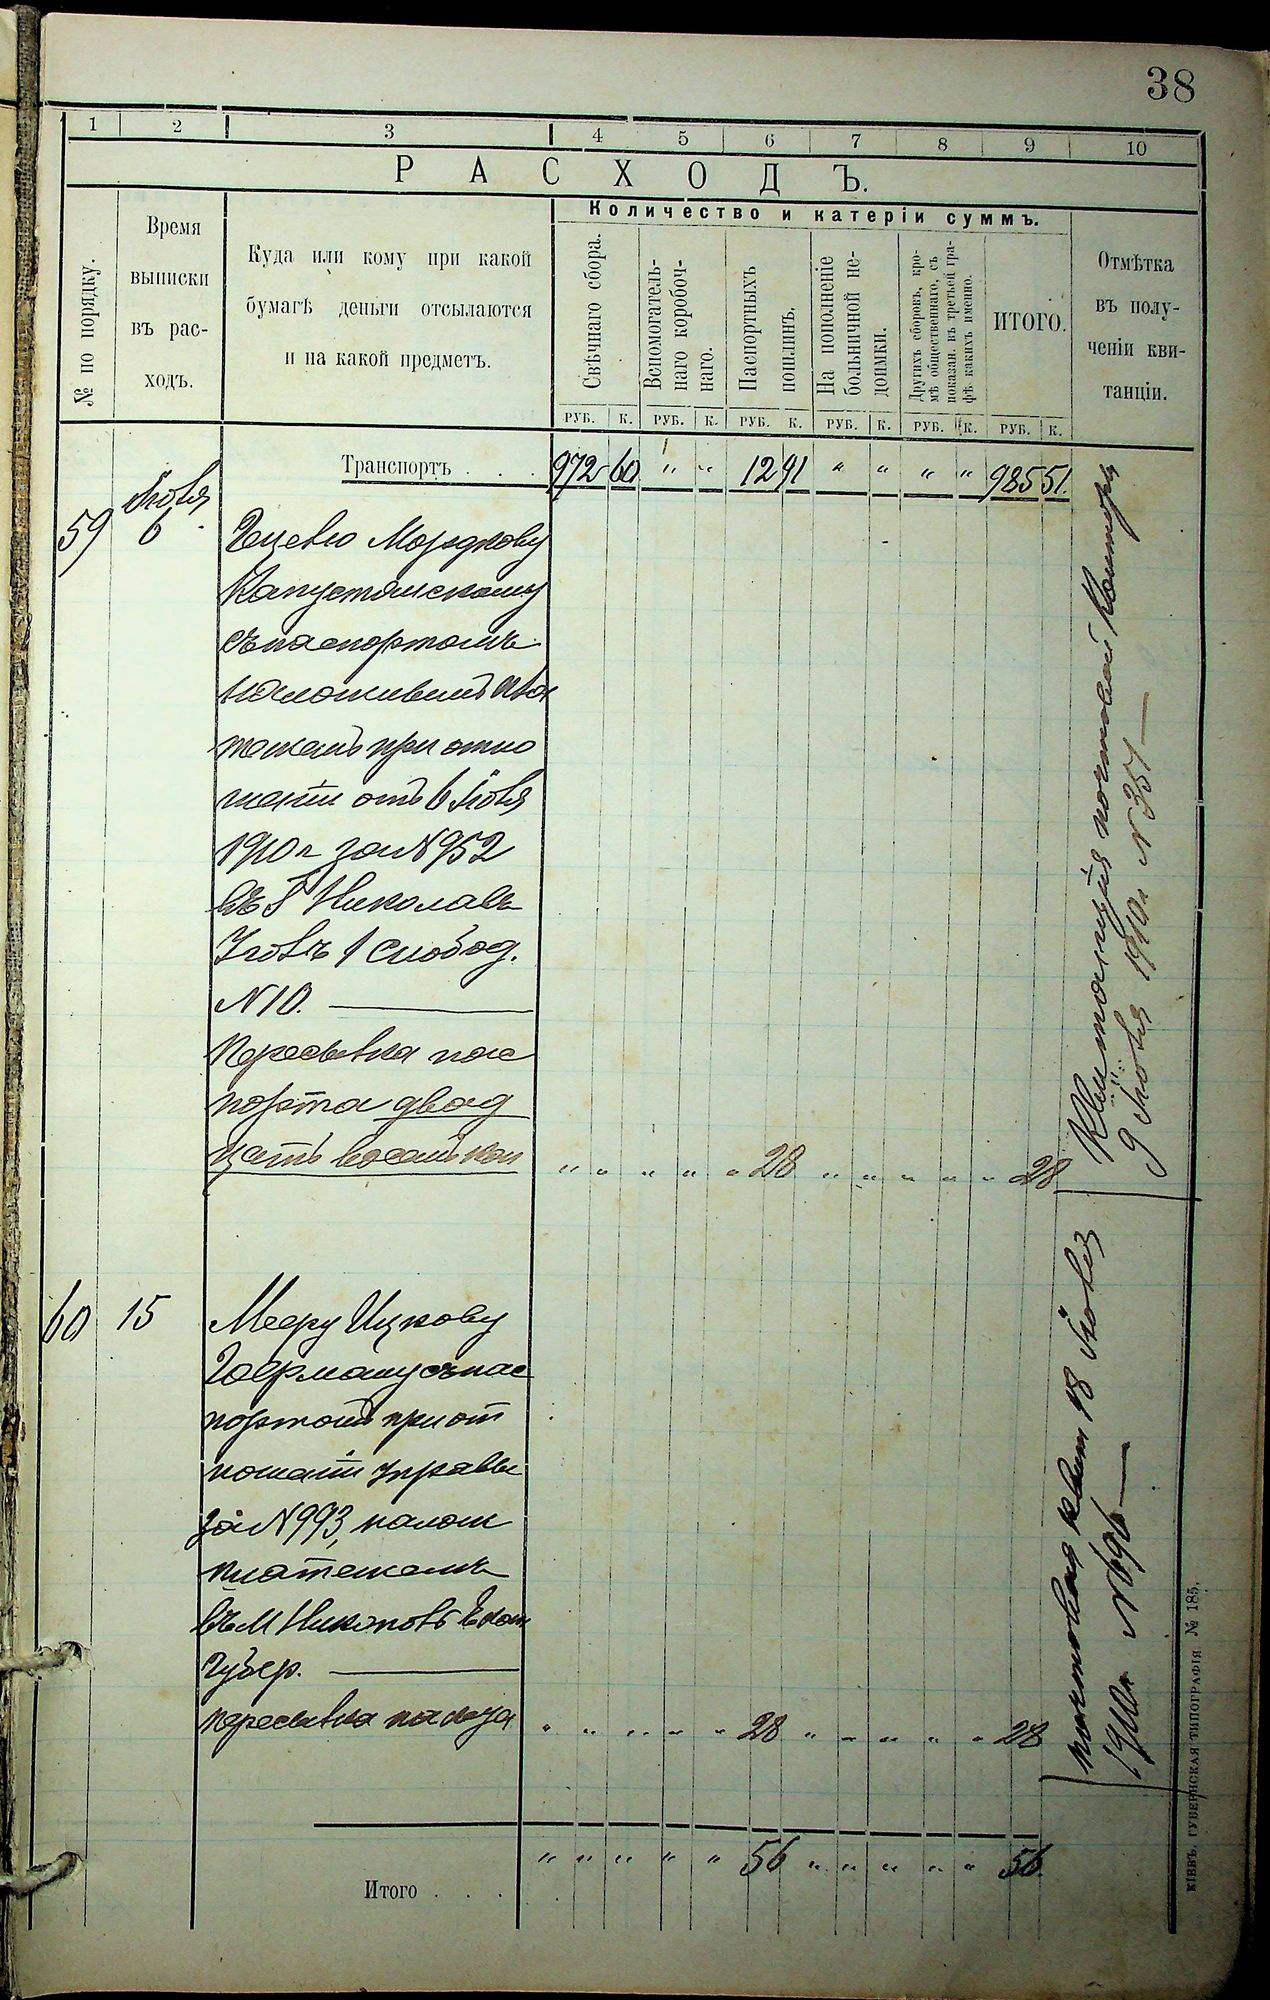 38
1 2 3 4 5 6 7 8 9 10
РАСХОДЪ.
№ по порядку.
Время
выписки
въ рас-
ходъ.
Куда или кому при какой
бумагѣ деньги отсылаются
и на какой предметъ.
Количество и категріи суммъ.
Свѣчнаго сбора.
Вспомогатель-
наго коробоч-
наго.
Паспортныхъ
пошлинъ.
На пополненіе
больничной не-
доимки.
Другихъ сборовъ, кро-
мѣ общественнаго, съ
показан. въ третьей гра-
фѣ какихъ именно.
ИТОГО.
Отмѣтка
въ полу-
ченіи кви-
танціи.
РУБ. К. РУБ. К. РУБ. К. РУБ. К. РУБ. К. РУБ. К.
Транспортъ . . . 972 60 " " 12 91 " " " " 985 51.
Іюля
59 6
Мордкову
Капустянскому
съ паспортомъ
пла
тежемъ при отно
шеніи отъ 6 Іюля
1910 г. за № 952
въ Г Николаевъ
1 Слобод.
№ 10.
пересылка пас
порта двад
цать восемь коп " " " " " 28 " " " " " 28
Квитанція почтовой Конторы
9 Іюля 1910 г. № 351
60 15 Мееру Ицкову
Герману съ пас
портомъ при от
ношеніи Управы
за № 993, налож
платежемъ
въ М Никополь Екат
Губер.
пересылка " " " " " 28 " " " " " 28
почтовая квит 18 Іюля
1910 г. № 696
Итого . . . " " " " " 56 " " " " " 56.
КІЕВЪ. ГУБЕРНСКАЯ ТИПОГРАФІЯ № 185.